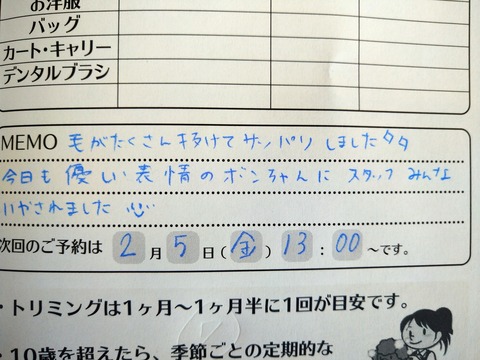 お洋服
バッグ
カート・キャリー
デンタルブラシ
MEMO 毛がたくさん抜けてサッパリしました♪♪
今日も優しい表情のボンちゃんにスタッフみんな
いやされました
次回のご予約は 2月5日(金)13:00~です。
・トリミングは1ヶ月~1ヶ月半に1回が目安です。
・10歳を超えたら、季節ごとの定期的な